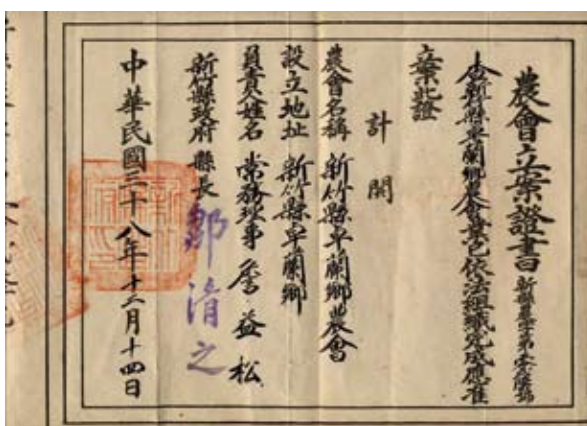 農會立案證書
查新竹縣卓蘭鄉農會業已依法組織完成應准
立案此證
計開
農會名稱 新竹縣卓蘭鄉農會
設立地址 新竹縣卓蘭鄉
負責人姓名 常務理事 詹益松
新竹縣政府縣長 鄒清之
中華民國三十八年十二月十四日